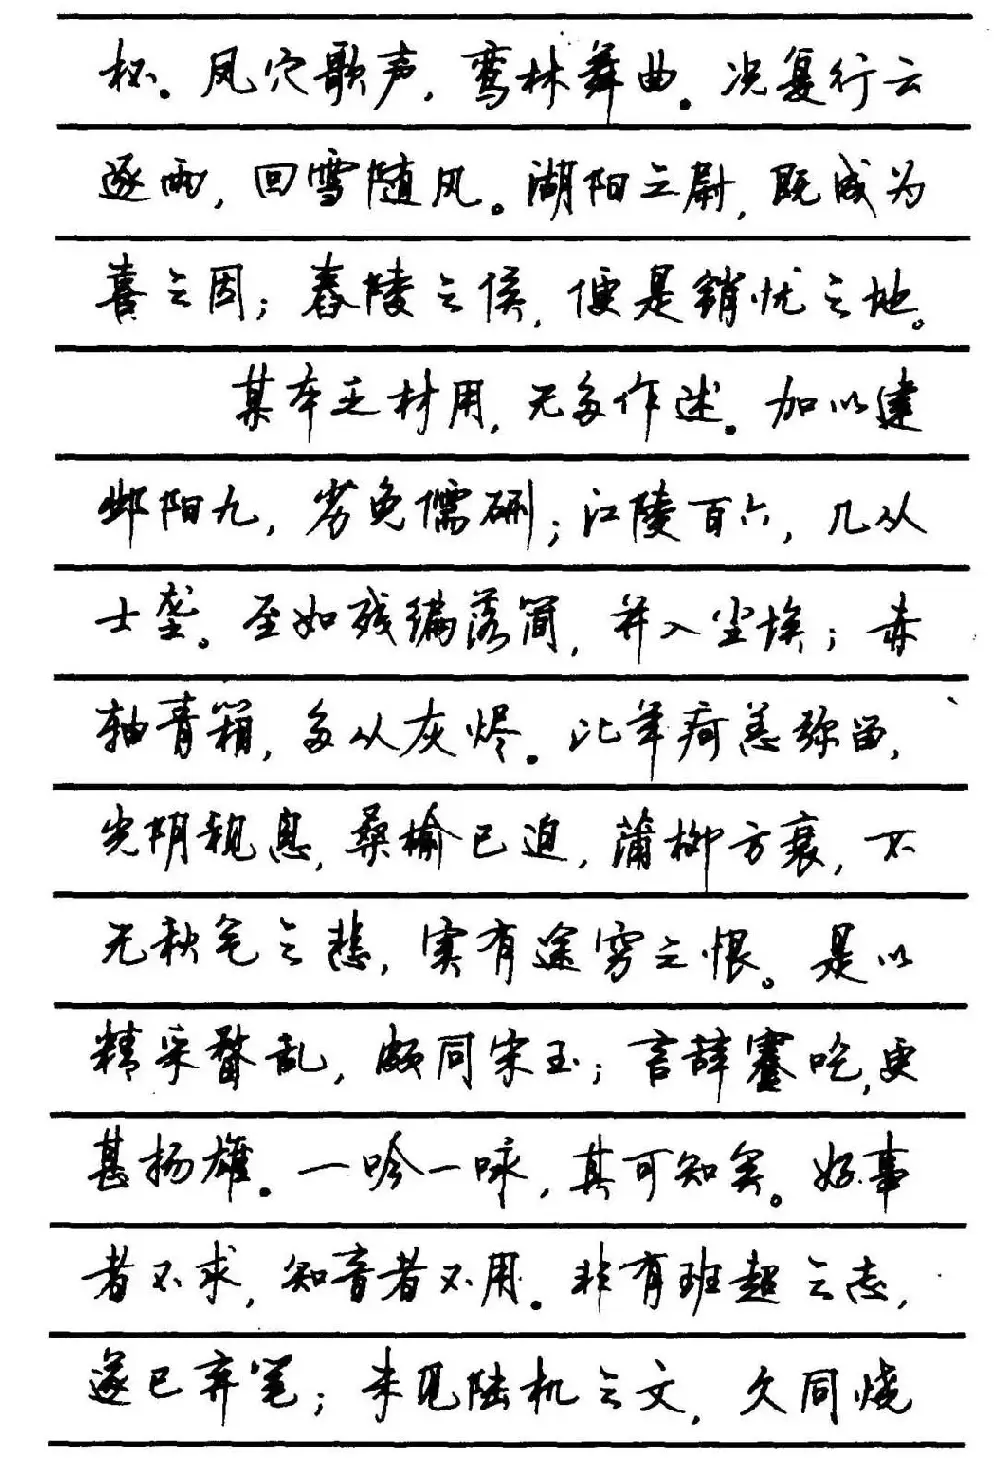 杯。凤穴歌声，鸾林舞曲。况复行云
逐雨，回雪随风。湖阳之尉，既成为
喜之因；舂陵之侯，便是销忧之地。
某本乏材用，无多作述。加以建
邺阳九，劣免儒硎；江陵百六，几从
士垄。至如残编落简，并入尘埃；赤
轴青箱，多从灰烬。比年疴恙弥留，
光阴视息，桑榆已迫，蒲柳方衰，不
无秋气之悲，实有途穷之恨。是以
精采瞀乱，颇同宋玉；言辞蹇吃，更
甚扬雄。一吟一咏，其可知矣。好事
者不求，知音者不用。非有班超之志，
遂已弃笔；未见陆机之文，久同烧